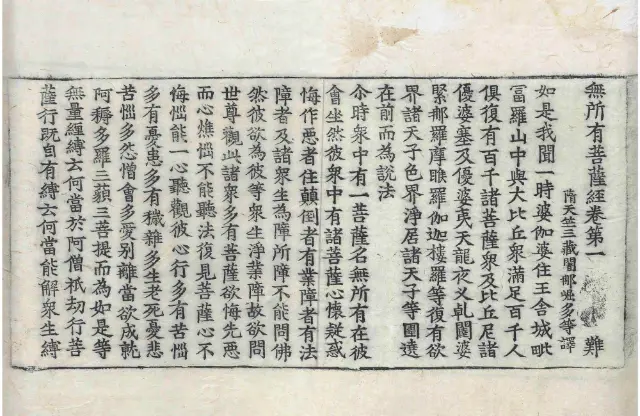 無所有菩薩經卷第一 難
隋天竺三藏闍那崛多等譯
如是我聞一時婆伽婆住王舍城毗
富羅山中與大比丘衆滿足百千人
俱復有百千諸菩薩衆及比丘尼諸
優婆塞及優婆夷天龍夜叉乹闥婆
緊那羅摩睺羅伽迦樓羅等復有欲
界諸天子色界淨居諸天子等圍遶
在前而為說法
尒時衆中有一菩薩名無所有在彼
會坐然彼衆中有諸菩薩心懷疑惑
悔作惡者住顛倒者有業障者有法
障者及諸衆生為障所障不能問佛
然彼欲為彼等衆生淨業障故欲問
世尊觀此諸衆多有菩薩欲悔先惡
而心燋惱不能聽法復見菩薩心不
悔惱能一心聽觀彼心行多有苦惱
多有憂患多有穢雜多生老死憂悲
苦惱多怨憎會多愛別離當欲成就
阿耨多羅三藐三菩提而為如是等
無量經縛云何當於阿僧祇劫行菩
薩行旣自有縛云何當能解衆生縛